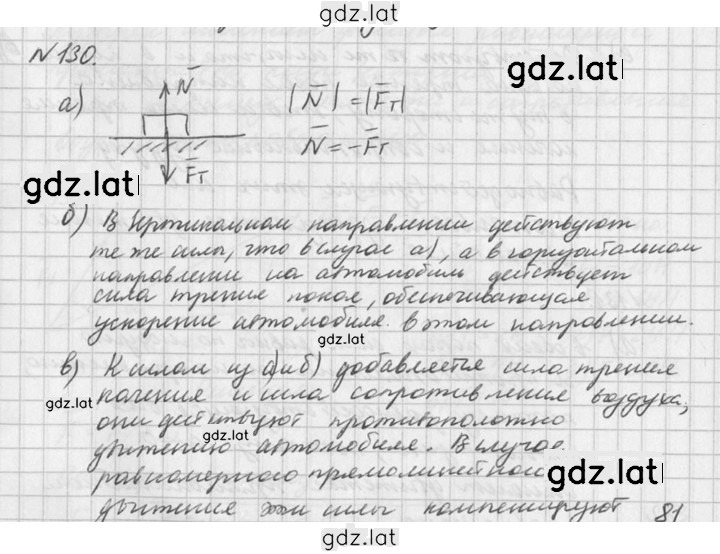 gdz.lat
N 130.
gdz.lat
а) N̅ |N̅| = |F̅т|
N̅ = -F̅т
F̅т
gdz.lat
б) В вертикальном направлении действуют
те же силы, что в случае а), а в горизонтальном
направлении на автомобиль действует
сила трения покоя, обеспечивающая
ускорение автомобиля в этом направлении.
в) К силам из а) и б) добавляется сила трения
качения и сила сопротивления воздуха,
gdz.lat
они действуют противоположно
gdz.lat
движению автомобиля. В случае
равномерного прямолинейного
gdz.lat
движения эти силы компенсируют
81
gdz.lat